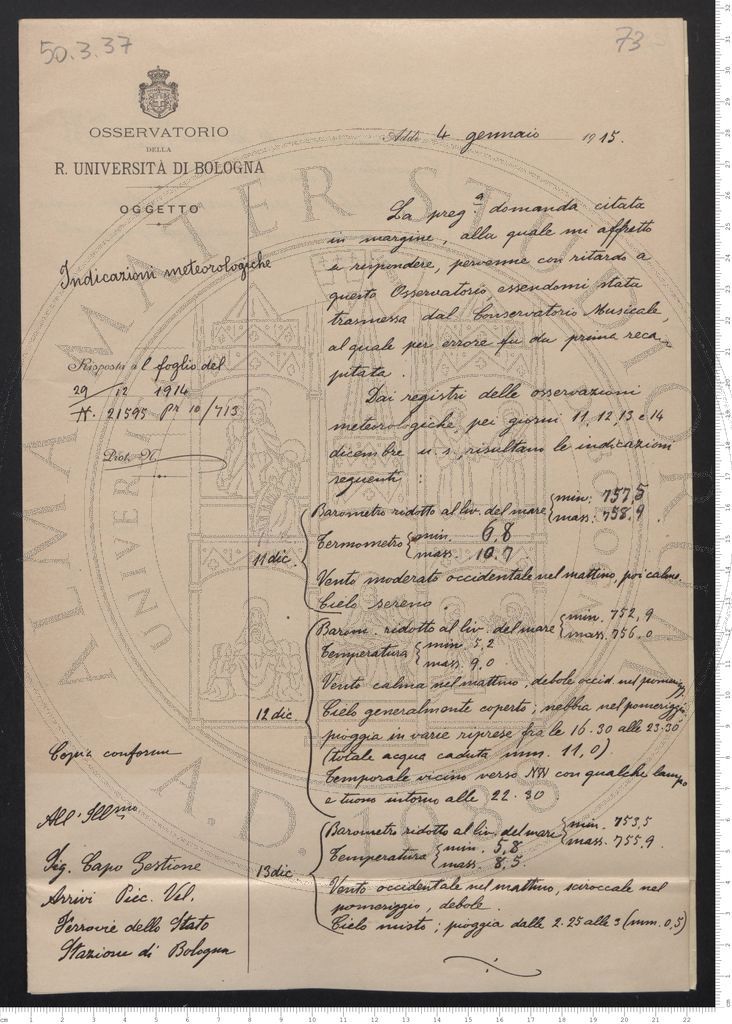 50.3.37
73
OSSERVATORIO
DELLA
R. UNIVERSITÀ DI BOLOGNA
OGGETTO
Indicazioni meteorologiche
Risposta al foglio del
29/12 1914
N. 21595 Pr 10/713
Prot. N.
Copia conforme
All'Illmo
Sig. Capo Gestione
Arrivi Picc. Vel.
Ferrovie dello Stato
Stazione di Bologna
Addì 4 gennaio 1915.
La preg.a domanda citata
in margine, alla quale mi affretto
a rispondere, pervenne con ritardo a
questo Osservatorio, essendomi stata
trasmessa dal Conservatorio Musicale,
al quale per errore fu da prima reca-
pitata.
Dai registri delle osservazioni
meteorologiche, pei giorni 11, 12, 13 e 14
dicembre u. s. risultano le indicazioni
seguenti:
11 dic.
Barometro ridotto al liv. del mare { min. 757,5
mass. 758,9.
Termometro { min. 6,8
mass. 10,7
Vento moderato occidentale nel mattino, poi calmo.
Cielo sereno.
12 dic.
Barom. ridotto al liv. del mare { min. 752,9
mass. 756,0
Temperatura { min. 5,2
mass. 9,0
Vento calma nel mattino, debole occid. nel pomerigg.
Cielo generalmente coperto; nebbia nel pomeriggio
pioggia in varie riprese fra le 16.30 alle 23.30
(totale acqua caduta mm. 11,0)
Temporale vicino verso NW con qualche lampo
e tuono intorno alle 22.30
13 dic
Barometro ridotto al liv. del mare { min. 753,5
mass. 755,9.
Temperatura { min. 5,8
mass. 8,5
Vento occidentale nel mattino, sciroccale nel
pomeriggio, debole.
Cielo misto; pioggia dalle 2.25 alle 3 (mm. 0,5)
ALMA MATER STUDIORUM
A.D. 1088